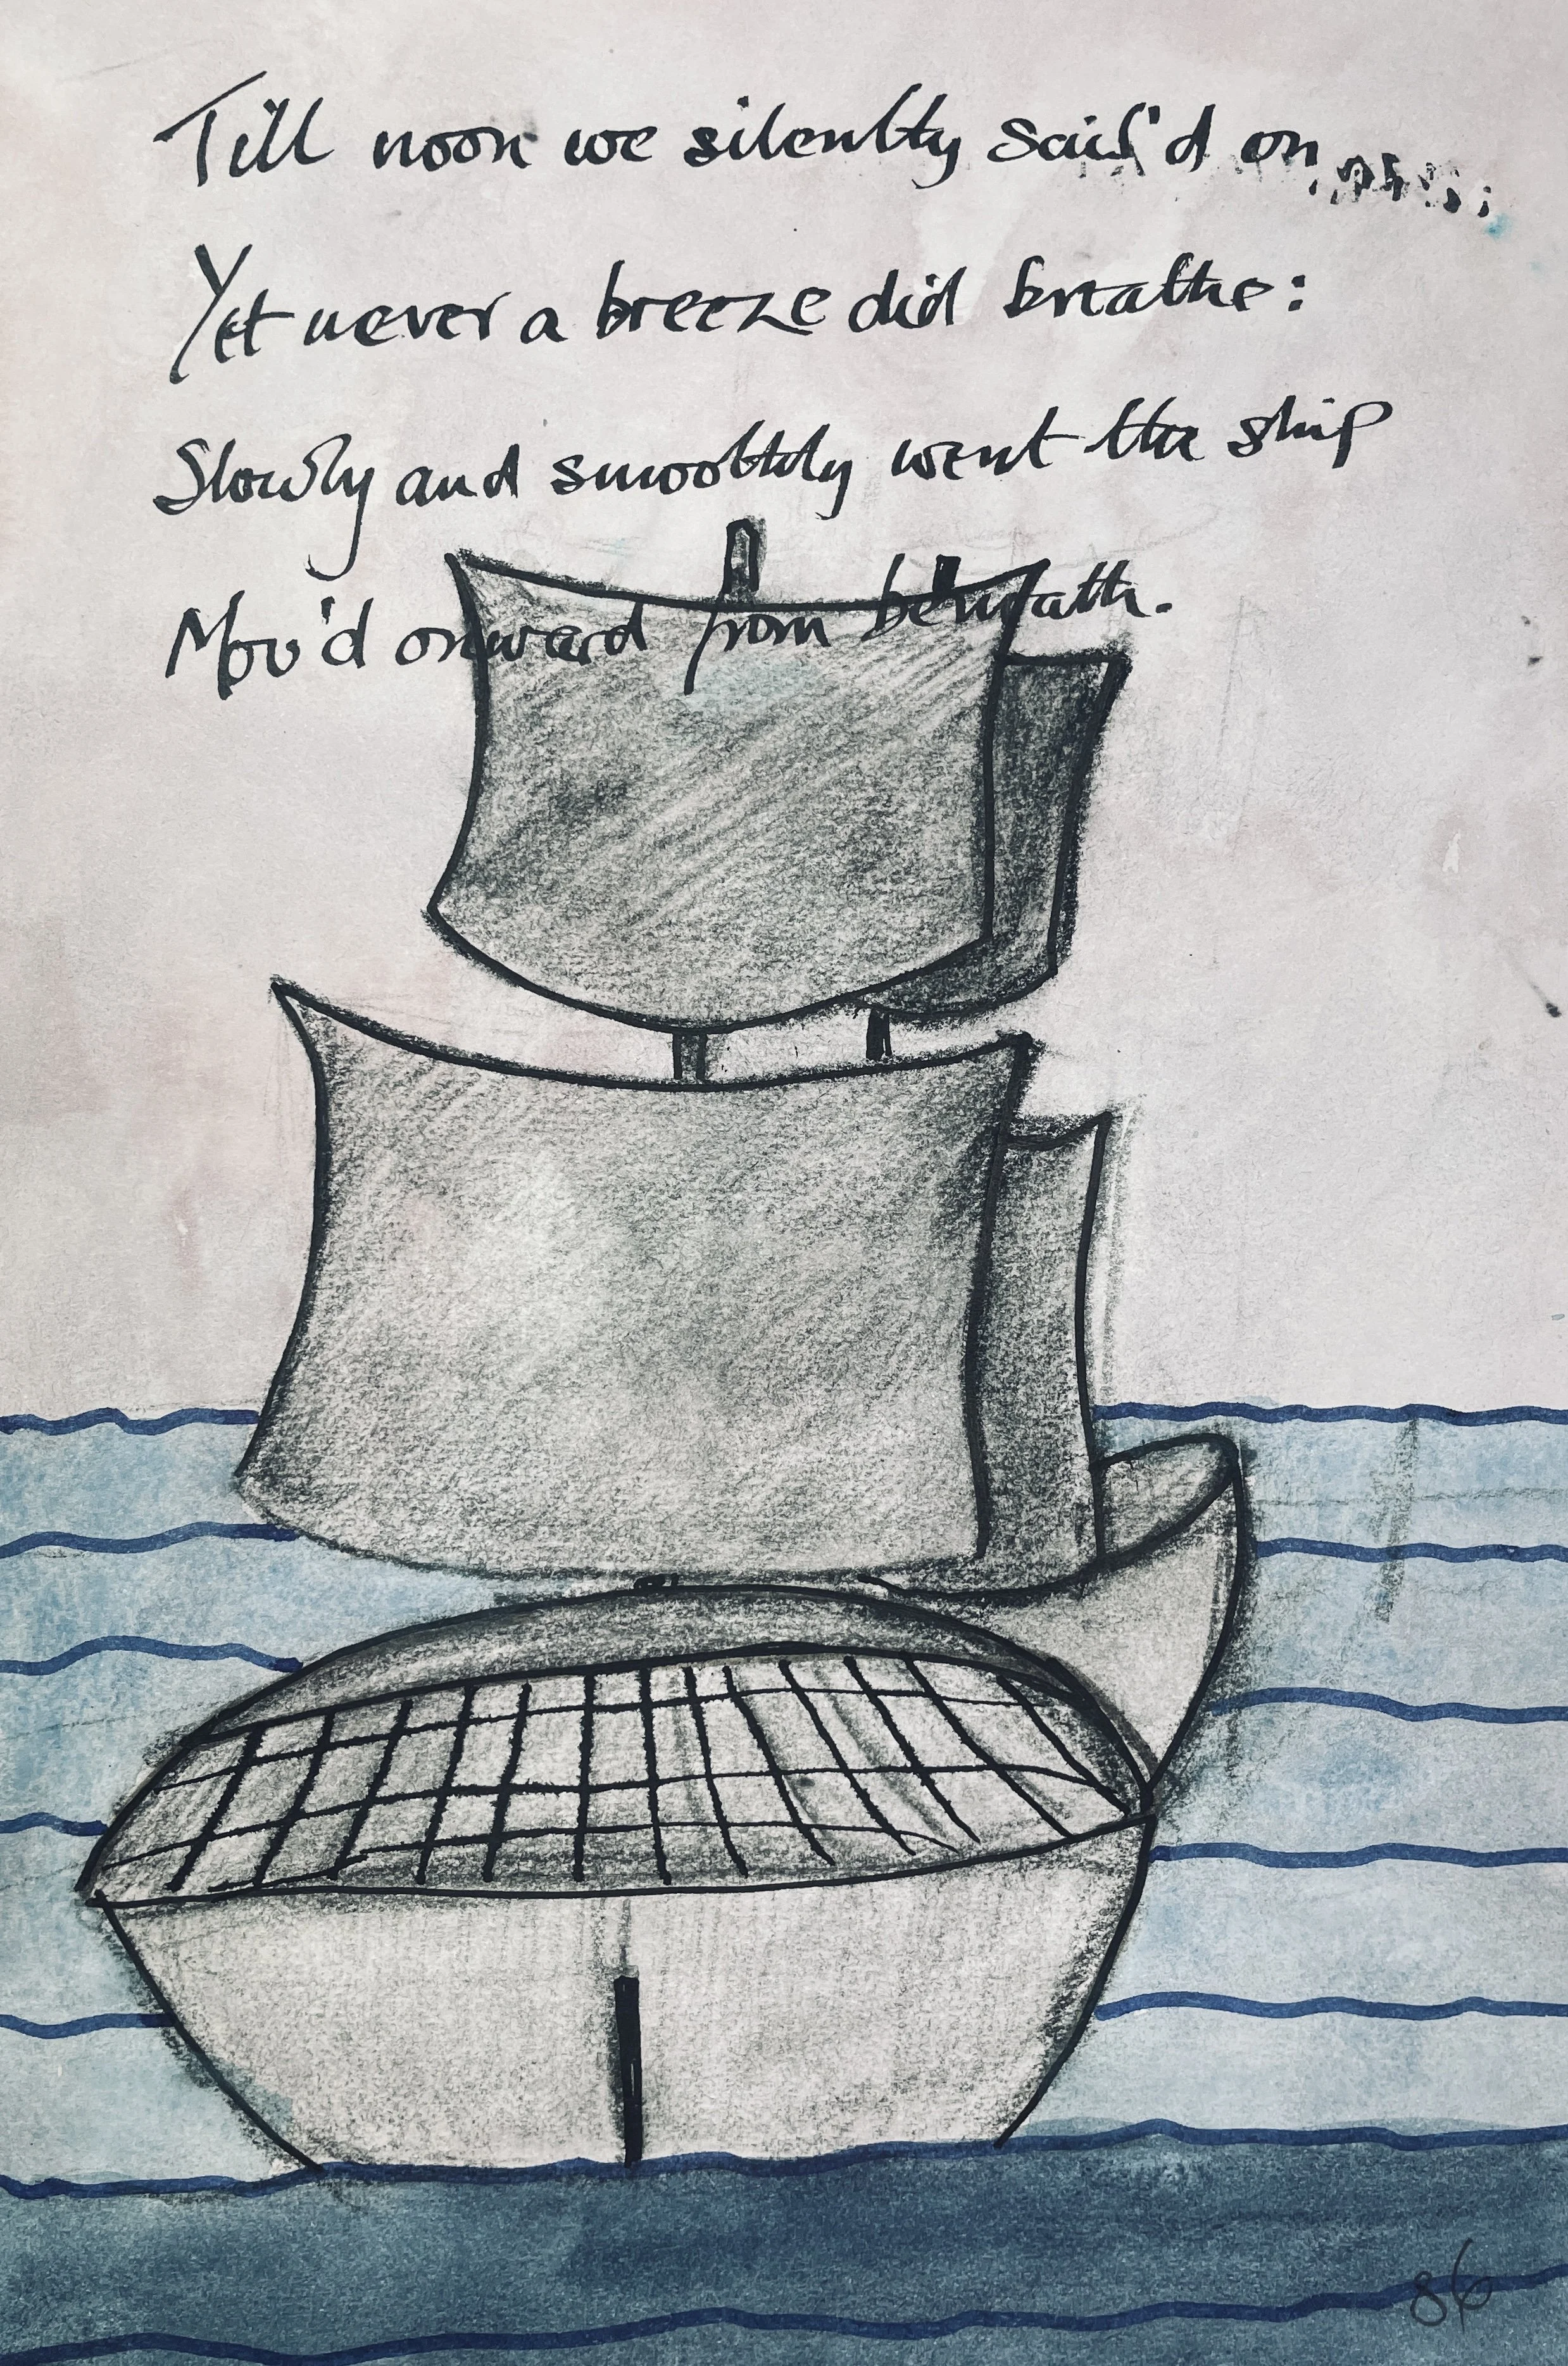 Till noon we silently sail'd on
Yet never a breeze did breathe:
Slowly and smoothly went the ship
Mov'd onward from beneath.
86